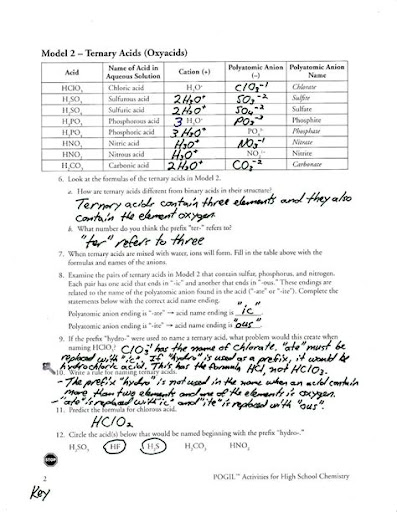 Model 2 – Ternary Acids (Oxyacids)
Acid Name of Acid in Aqueous Solution Cation (+) Polyatomic Anion (–) Polyatomic Anion Name
HClO₃ Chloric acid H₃O⁺ ClO₃⁻¹ Chlorate
H₂SO₃ Sulfurous acid 2 H₃O⁺ SO₃⁻² Sulfite
H₂SO₄ Sulfuric acid 2 H₃O⁺ SO₄⁻² Sulfate
H₃PO₃ Phosphorous acid 3 H₃O⁺ PO₃⁻³ Phosphite
H₃PO₄ Phosphoric acid 3 H₃O⁺ PO₄³⁻ Phosphate
HNO₃ Nitric acid H₃O⁺ NO₃⁻¹ Nitrate
HNO₂ Nitrous acid H₃O⁺ NO₂¹⁻ Nitrite
H₂CO₃ Carbonic acid 2 H₃O⁺ CO₃⁻² Carbonate
6. Look at the formulas of the ternary acids in Model 2.
a. How are ternary acids different from binary acids in their structure?
Ternary acids contain three elements and they also
contain the element oxygen.
b. What number do you think the prefix "ter-" refers to?
"ter" refers to three
7. When ternary acids are mixed with water, ions will form. Fill in the table above with the
formulas and names of the anions.
8. Examine the pairs of ternary acids in Model 2 that contain sulfur, phosphorus, and nitrogen.
Each pair has one acid that ends in "-ic" and another that ends in "-ous." These endings are
related to the name of the polyatomic anion found in the acid ("-ate" or "-ite"). Complete the
statements below with the correct acid name ending.
Polyatomic anion ending is "-ate" → acid name ending is "ic"
Polyatomic anion ending is "-ite" → acid name ending is "ous"
9. If the prefix "hydro-" were used to name a ternary acid, what problem would this create when
naming HClO₃? ClO₃⁻¹ has the name of chlorate. "ate" must be
replaced with "ic". If "hydro" is used as a prefix, it would be
hydrochloric acid. This has the formula HCl, not HClO₃.
10. Write a rule for naming ternary acids.
- The prefix "hydro" is not used in the name when an acid contain
more than two elements and one of the elements is oxygen.
- "ate" is replaced with "ic" and "ite" is replaced with "ous".
11. Predict the formula for chlorous acid.
HClO₂
12. Circle the acid(s) below that would be named beginning with the prefix "hydro-."
H₂SO₃ HF H₂S H₂CO₃ HNO₃
STOP
2 POGIL™ Activities for High School Chemistry
Key